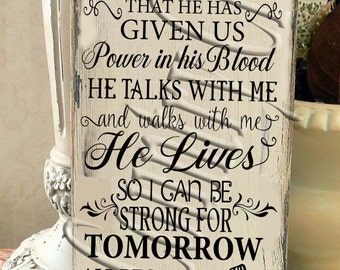 THAT HE HAS
GIVEN US
Power in his Blood
HE TALKS WITH ME
and walks with me
He Lives
SO I CAN BE
STRONG FOR
TOMORROW